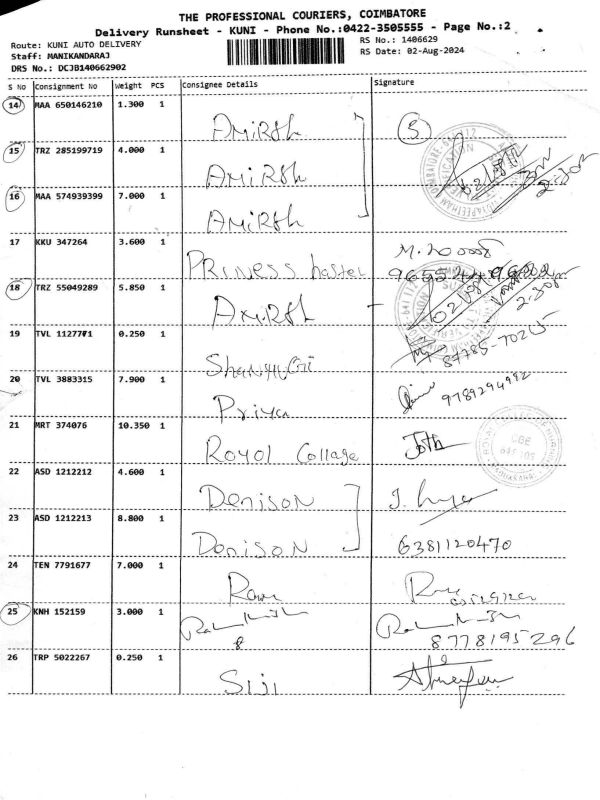 THE PROFESSIONAL COURIERS, COIMBATORE
Delivery Runsheet - KUNI - Phone No.:0422-3505555 - Page No.:2
Route: KUNI AUTO DELIVERY RS No.: 1406629
Staff: MANIKANDARAJ RS Date: 02-Aug-2024
DRS No.: DCJB140662902
S No Consignment No Weight PCS Consignee Details Signature
14 MAA 650146210 1.300 1
AMIRSh 5
15 TRZ 285199719 4.000 1
AMiRSh
16 MAA 574939399 7.000 1
AMIRSh
17 KKU 347264 3.600 1
PRINESS hostel
18 TRZ 55049289 5.850 1
AMIRSh 2.30
19 TVL 1127771 0.250 1
87785-702
20 TVL 3883315 7.900 1
Priya 9789294992
21 MRT 374076 10.350 1
Royol Collage Joth
22 ASD 1212212 4.600 1
Denison
23 ASD 1212213 8.800 1
Denison 6381120470
24 TEN 7791677 7.000 1
25 KNH 152159 3.000 1
8778195296
26 TRP 5022267 0.250 1
SIJI